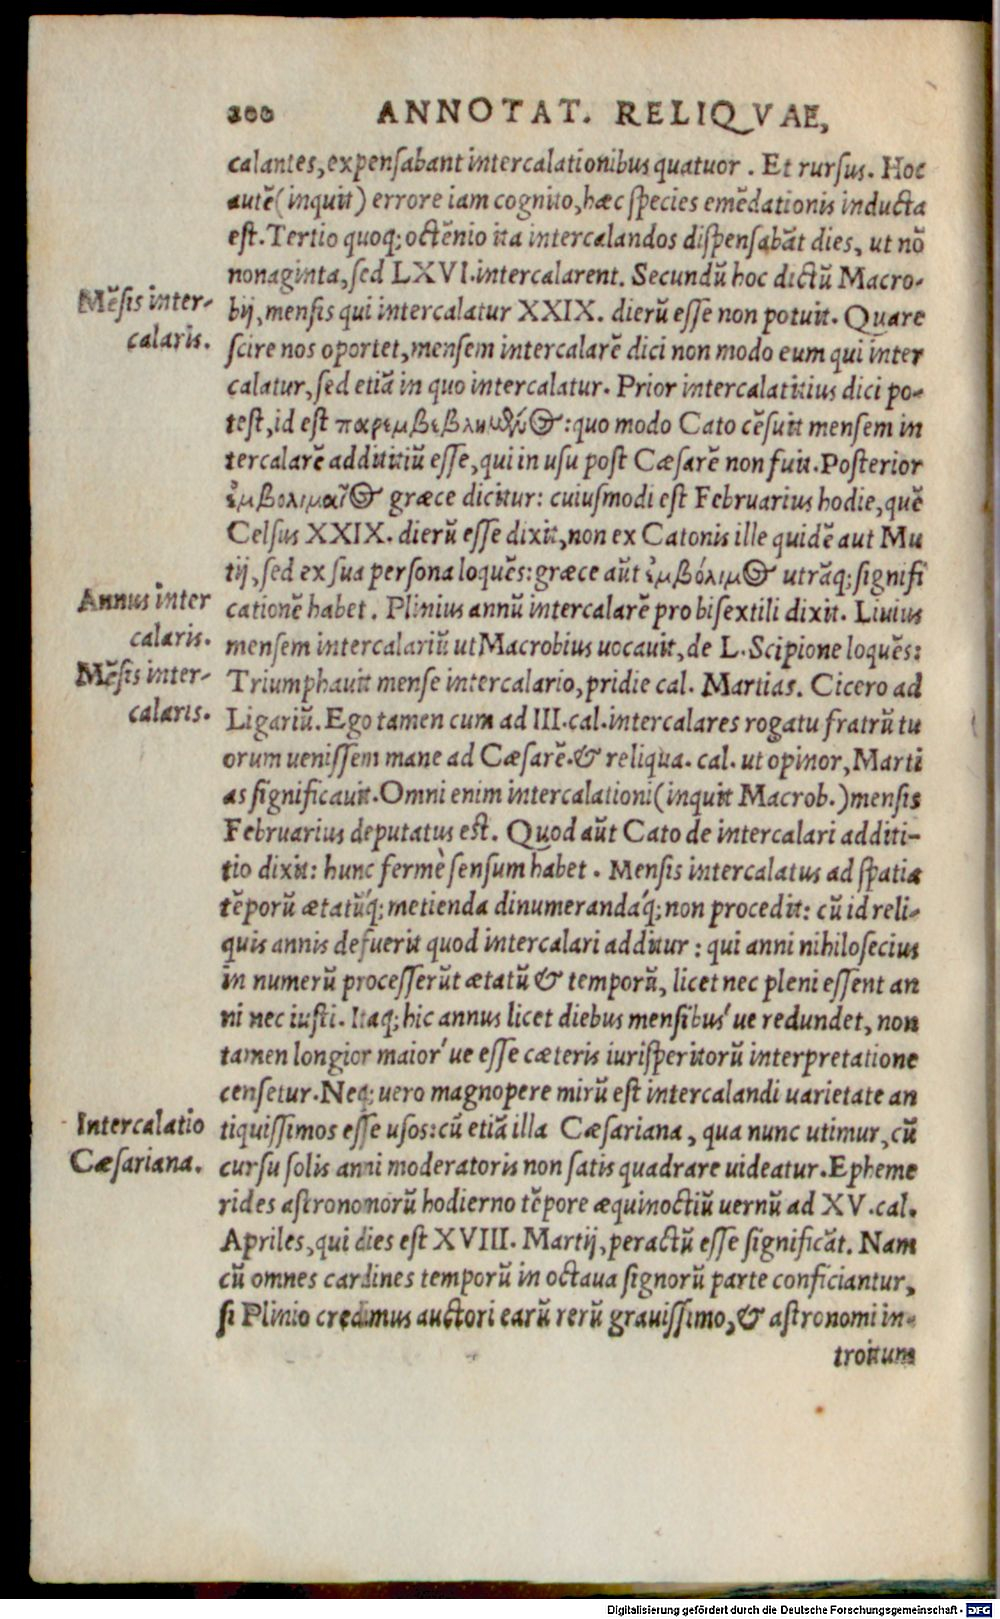 200 ANNOTAT. RELIQVAE,
calantes, expensabant intercalationibus quatuor. Et rursus. Hoc
autẽ (inquit) errore iam cognito, hæc species emẽdationis inducta
est. Tertio quoq; octẽnio ita intercalandos dispensabãt dies, ut nõ
nonaginta, sed LXVI. intercalarent. Secundũ hoc dictũ Macro-
Mẽsis inter-
calaris.
bij, mensis qui intercalatur XXIX. dierũ esse non potuit. Quare
scire nos oportet, mensem intercalarẽ dici non modo eum qui inter
calatur, sed etiã in quo intercalatur. Prior intercalatitius dici po-
test, id est : quo modo Cato cẽsuit mensem in
tercalarẽ addititiũ esse, qui in usu post Cæsarẽ non fuit. Posterior
græce dicitur: cuiusmodi est Februarius hodie, quẽ
Celsus XXIX. dierũ esse dixit, non ex Catonis ille quidẽ aut Mu
tij, sed ex sua persona loquẽs: græce aũt ἐμβόλιμος utrãq; signifi
Annus inter
calaris.
cationẽ habet. Plinius annũ intercalarẽ pro bisextili dixit. Liuius
mensem intercalariũ ut Macrobius uocauit, de L. Scipione loquẽs:
Mẽsis inter-
calaris.
Triumphauit mense intercalario, pridie cal. Martias. Cicero ad
Ligariũ. Ego tamen cum ad III. cal. intercalares rogatu fratrũ tu
orum uenissem mane ad Cæsarẽ. & reliqua. cal. ut opinor, Marti
as significauit. Omni enim intercalationi (inquit Macrob.) mensis
Februarius deputatus est. Quod aũt Cato de intercalari additi-
tio dixit: hunc fermè sensum habet. Mensis intercalatus ad spatia
tẽporũ ætatũq́; metienda dinumerandáq́; non procedit: cũ id reli-
quis annis defuerit quod intercalari additur: qui anni nihilosecius
in numerũ processerũt ætatũ & temporũ, licet nec pleni essent an
ni nec iusti. Itaq; hic annus licet diebus mensibus´ue redundet, non
tamen longior maior´ue esse cæteris iurisperitorũ interpretatione
censetur. Neq; uero magnopere mirũ est intercalandi uarietate an
Intercalatio
Cæsariana.
tiquissimos esse usos: cũ etiã illa Cæsariana, qua nunc utimur, cũ
cursu solis anni moderatoris non satis quadrare uideatur. Epheme
rides astronomorũ hodierno tẽpore æquinoctiũ uernũ ad XV. cal.
Apriles, qui dies est XVIII. Martij, peractũ esse significãt. Nam
cũ omnes cardines temporũ in octaua signorũ parte conficiantur,
si Plinio credimus auctori earũ rerũ grauissimo, & astronomi in-
troitum
Digitalisierung gefördert durch die Deutsche Forschungsgemeinschaft - DFG